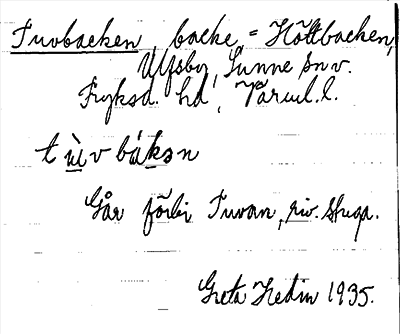 Tuvbacken, backe = Höttbacken,
Ulfsby, Sunne sn v.
Fryksd. hd, Värml. l.
t ù v bákən
Går förbi Tuvan, riv. stuga.
Greta Hedin 1935.